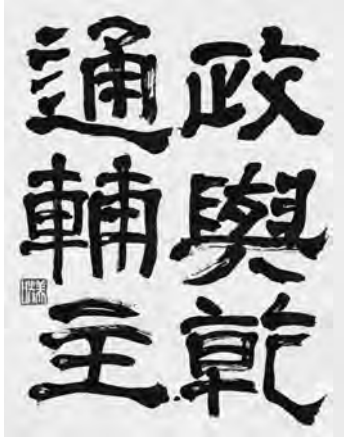 政與乾
通輔主